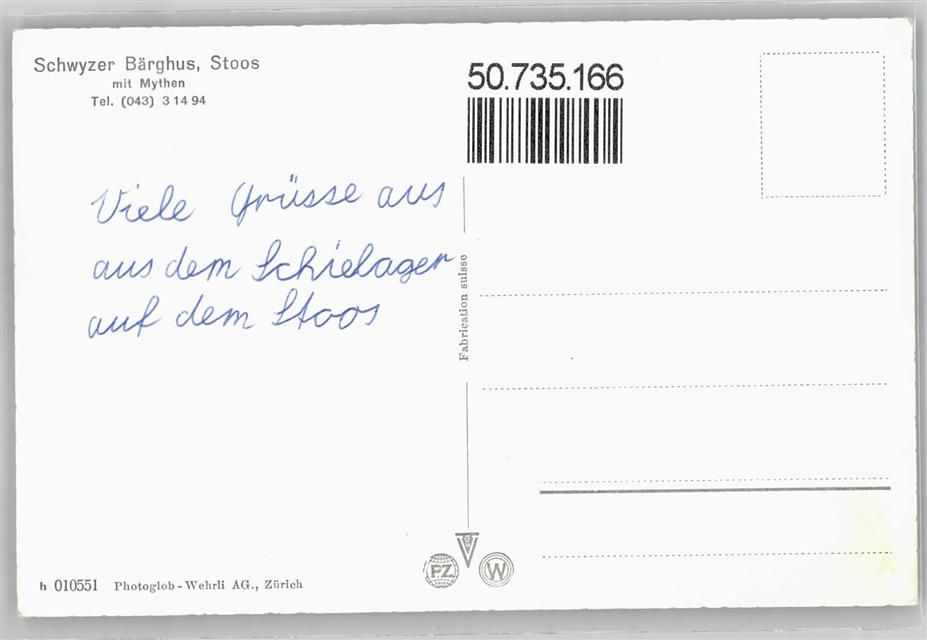 Schwyzer Bärghus, Stoos
mit Mythen
Tel. (043) 3 14 94
50.735.166
Viele Grüsse aus
aus dem Schielager
auf dem Stoos
Fabrication suisse
PZ
W
h 010551 Photoglob-Wehrli AG., Zürich